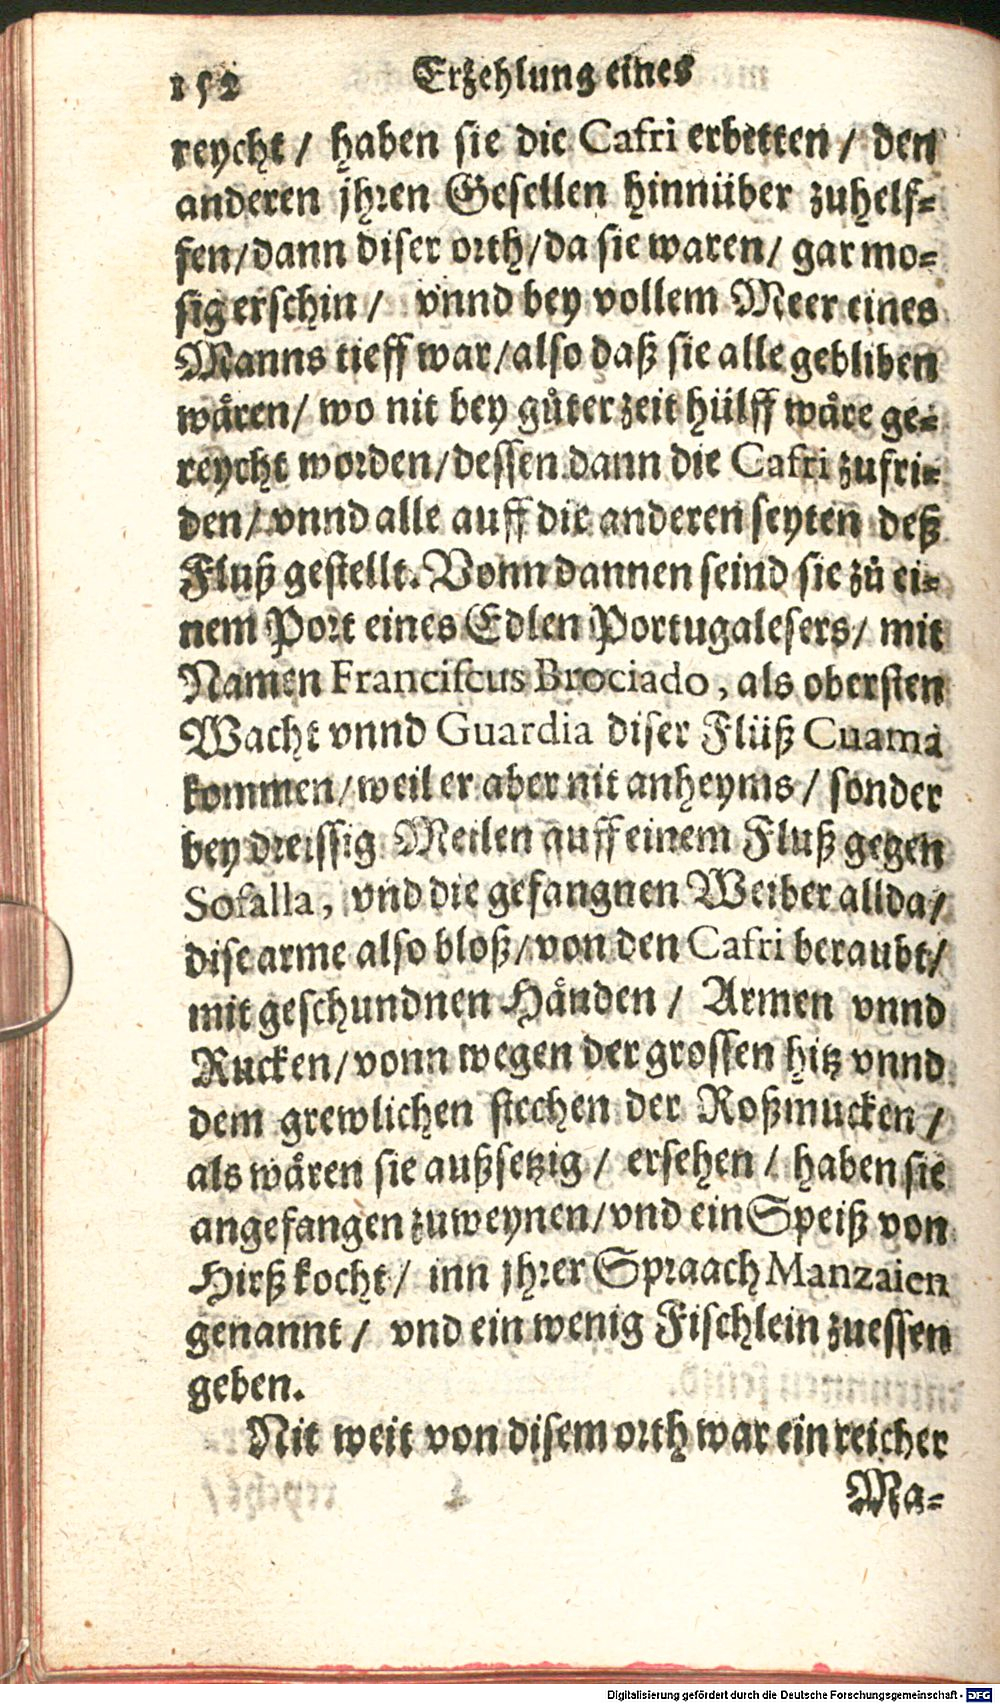 152 Erzehlung eines
reycht / haben sie die Cafri erbetten / den
anderen jhren Gesellen hinnüber zuhelf-
fen/dann diser orth/da sie waren/ gar mo-
sig erschin / vnnd bey vollem Meer eines
Manns tieff war/also daß sie alle gebliben
wären/ wo nit bey gůter zeit hülff wäre ge-
reycht worden/dessen dann die Cafri zufri-
den/ vnnd alle auff die anderen seyten deß
Fluß gestellt. Vonn dannen seind sie zů ei-
nem Port eines Edlen Portugalesers/ mit
Namen Franciscus Brociado, als obersten
Wacht vnnd Guardia diser Flüß Cuama
kommen/weil er aber nit anheyms / sonder
bey dreissig Meilen auff einem Fluß gegen
Sofalla, vnd die gefangnen Weiber allda/
dise arme also bloß/von den Cafri beraubt/
mit geschundnen Händen / Armen vnnd
Rucken/vonn wegen der grossen hitz vnnd
dem grewlichen stechen der Roßmucken /
als wären sie außsetzig / ersehen / haben sie
angefangen zuweynen/vnd ein Speiß von
Hirß kocht/ inn jhrer Spraach Manzaien
genannt / vnd ein wenig Fischlein zuessen
geben.
Nit weit von disem orth war ein reicher
Ma-
Digitalisierung gefördert durch die Deutsche Forschungsgemeinschaft - DFG